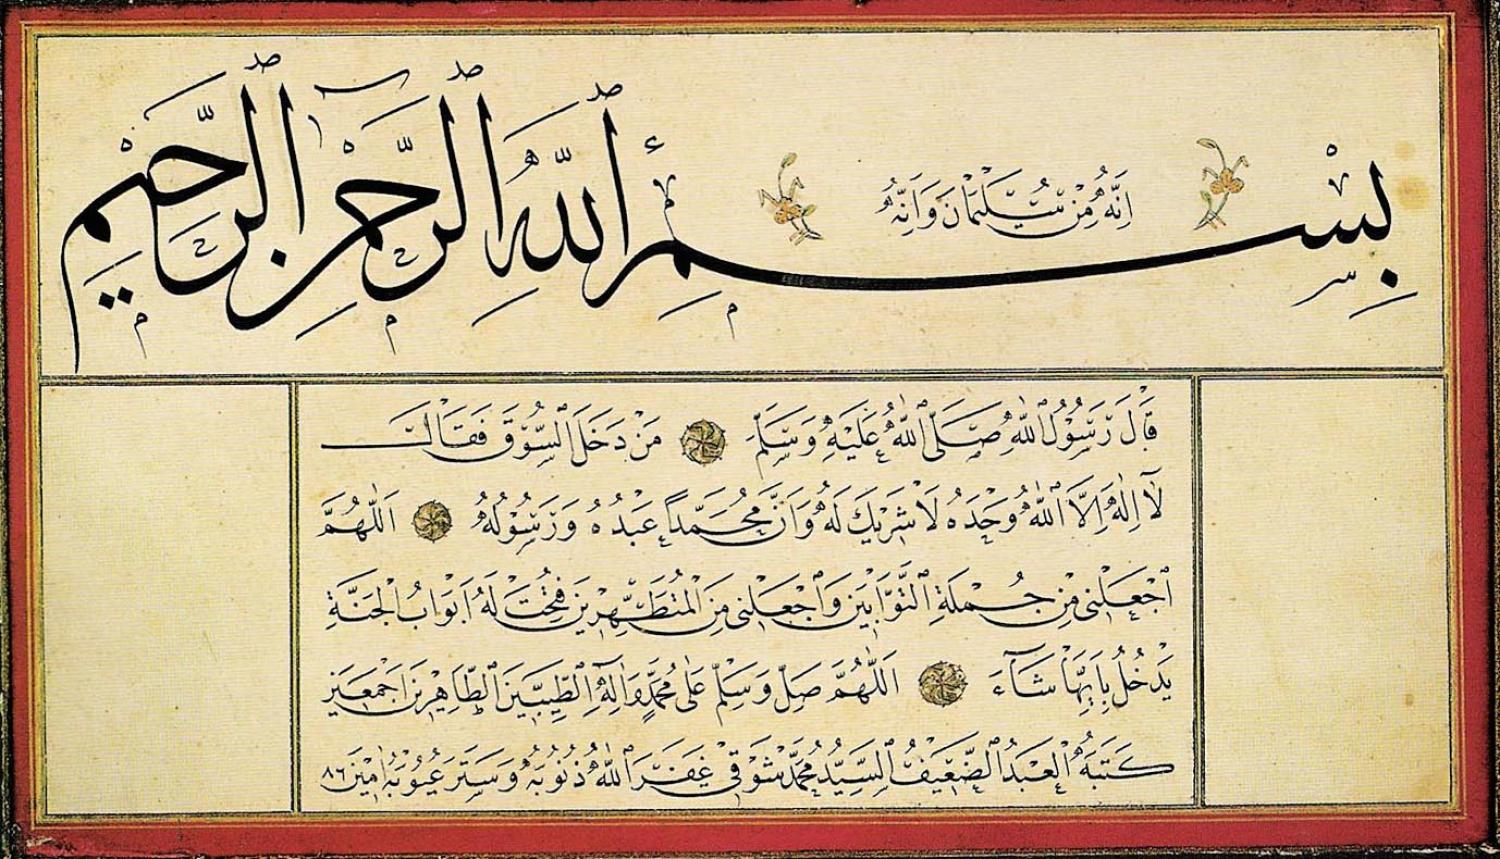 بِسْمِ ٱللَّهِ ٱلرَّحْمٰنِ ٱلرَّحِيمِ
اِنَّهُ مِنْ سُلَيْمَانَ وَاِنَّهُ
قَالَ رَسُولُ ٱللهِ صَلَّى ٱللهُ عَلَيْهِ وَسَلَّمَ مَنْ دَخَلَ السُّوقَ فَقَالَ
لَٓا اِلٰهَ اِلَّا ٱللهُ وَحْدَهُ لَا شَرِيكَ لَهُ وَاَنَّ مُحَمَّداً عَبْدُهُ وَرَسُولُهُ اَللّٰهُمَّ
ٱجْعَلْنِى مِنْ جُمْلَةِ التَّوَّابِينَ وَٱجْعَلْنِى مِنَ الْمُتَطَهِّرِينَ فُتِحَتْ لَهُ اَبْوَابُ الْجَنَّةِ
يَدْخُلُ بِاَيِّهَا شَٓاءَ اَللّٰهُمَّ صَلِّ وَسَلِّمْ عَلٰى مُحَمَّدٍ وَاٰلِهِ الطَّيِّبِينَ الطَّاهِرِينَ اَجْمَعِينَ
كَتَبَهُ الْعَبْدُ الضَّعِيفُ السَّيِّدُ مُحَمَّدْ شَوْقِى غَفَرَ ٱللهُ ذُنُوبَهُ وَسَتَرَ عُيُوبَهُ اٰمِينَ ٨٦